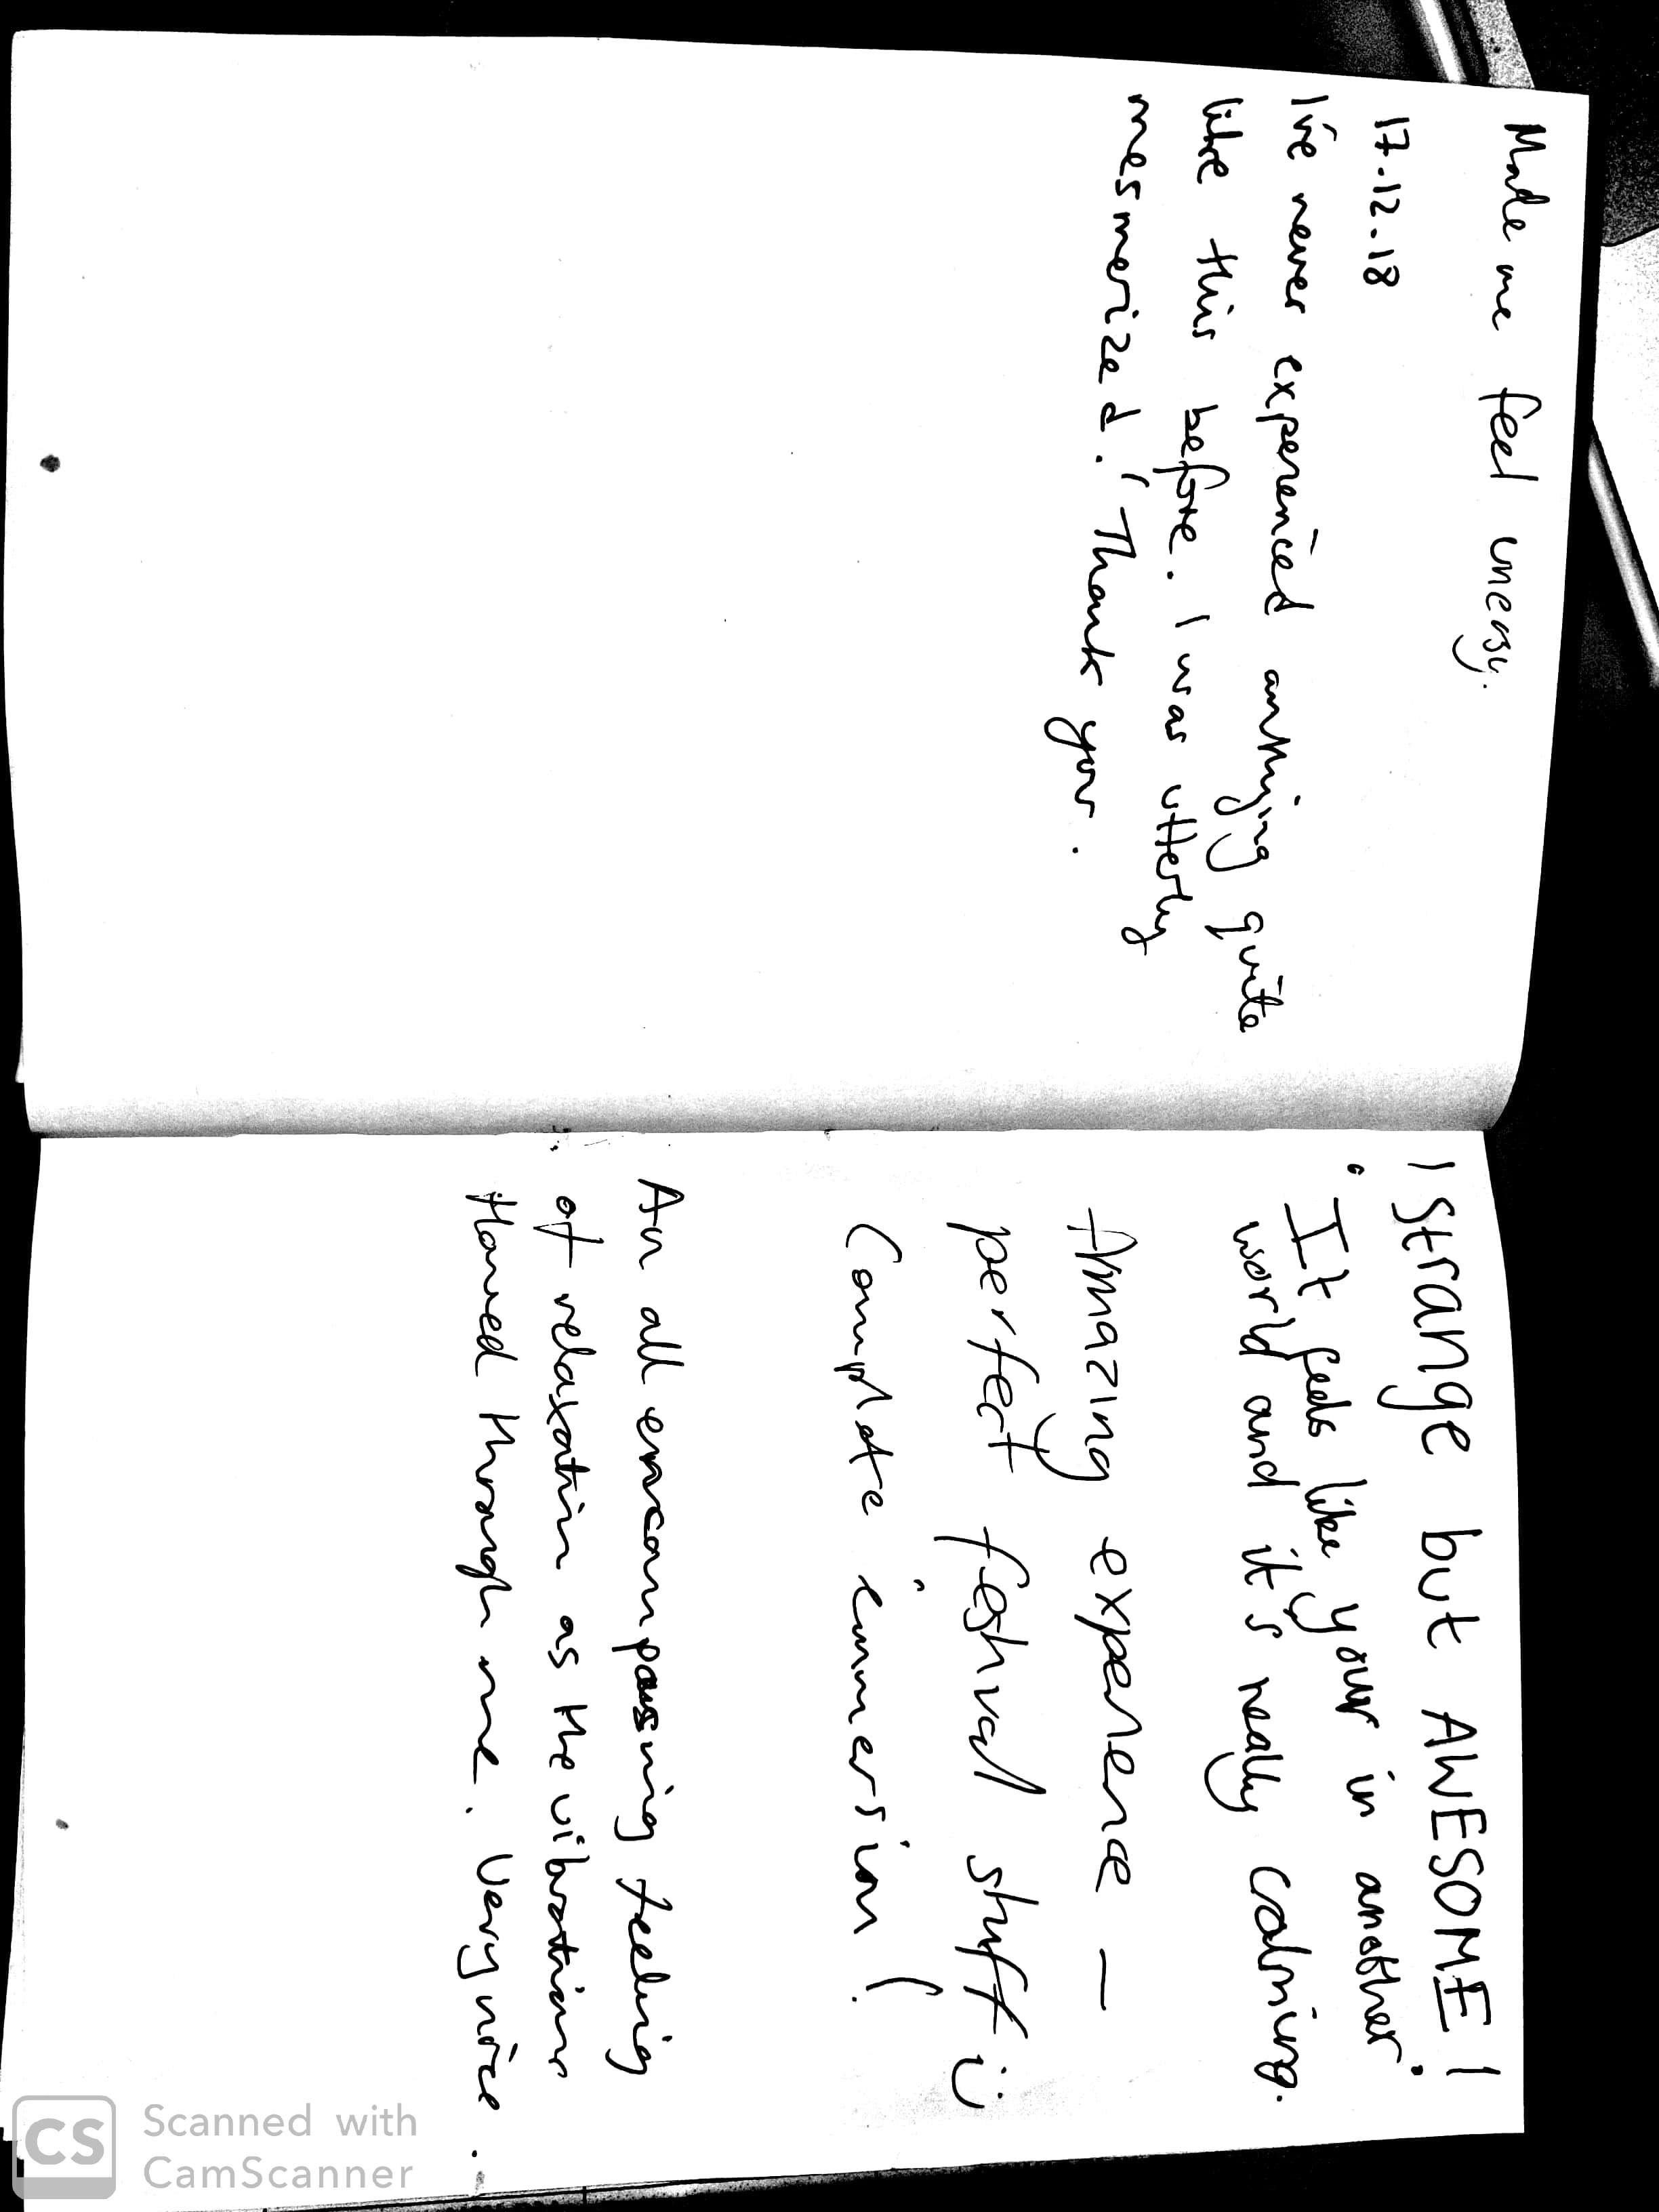 Made me feel uneasy.
17.12.18
I've never experienced anything quite
like this before. I was utterly
mesmerized! Thank you.
! Strange but AWESOME!
It feels like your in another
world and it's really calming.
Amazing experience –
perfect festival stuff :)
Complete immersion!
An all encompassing feeling
of relaxation as the vibrations
flowed through me. Very nice.
CS Scanned with
CamScanner